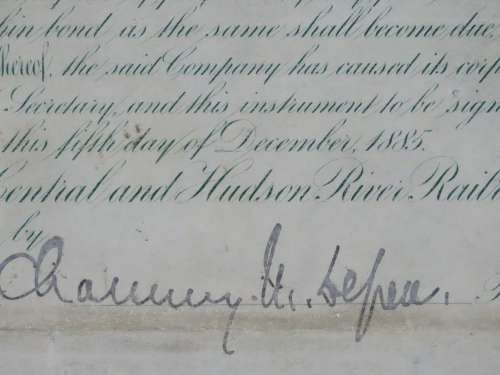 hin bond as the same shall become due,
hereof, the said Company has caused its corp
Secretary, and this instrument to be sign
this fifth day of December, 1885.
Central and Hudson River Railr
by
Chauncey M. Depew.